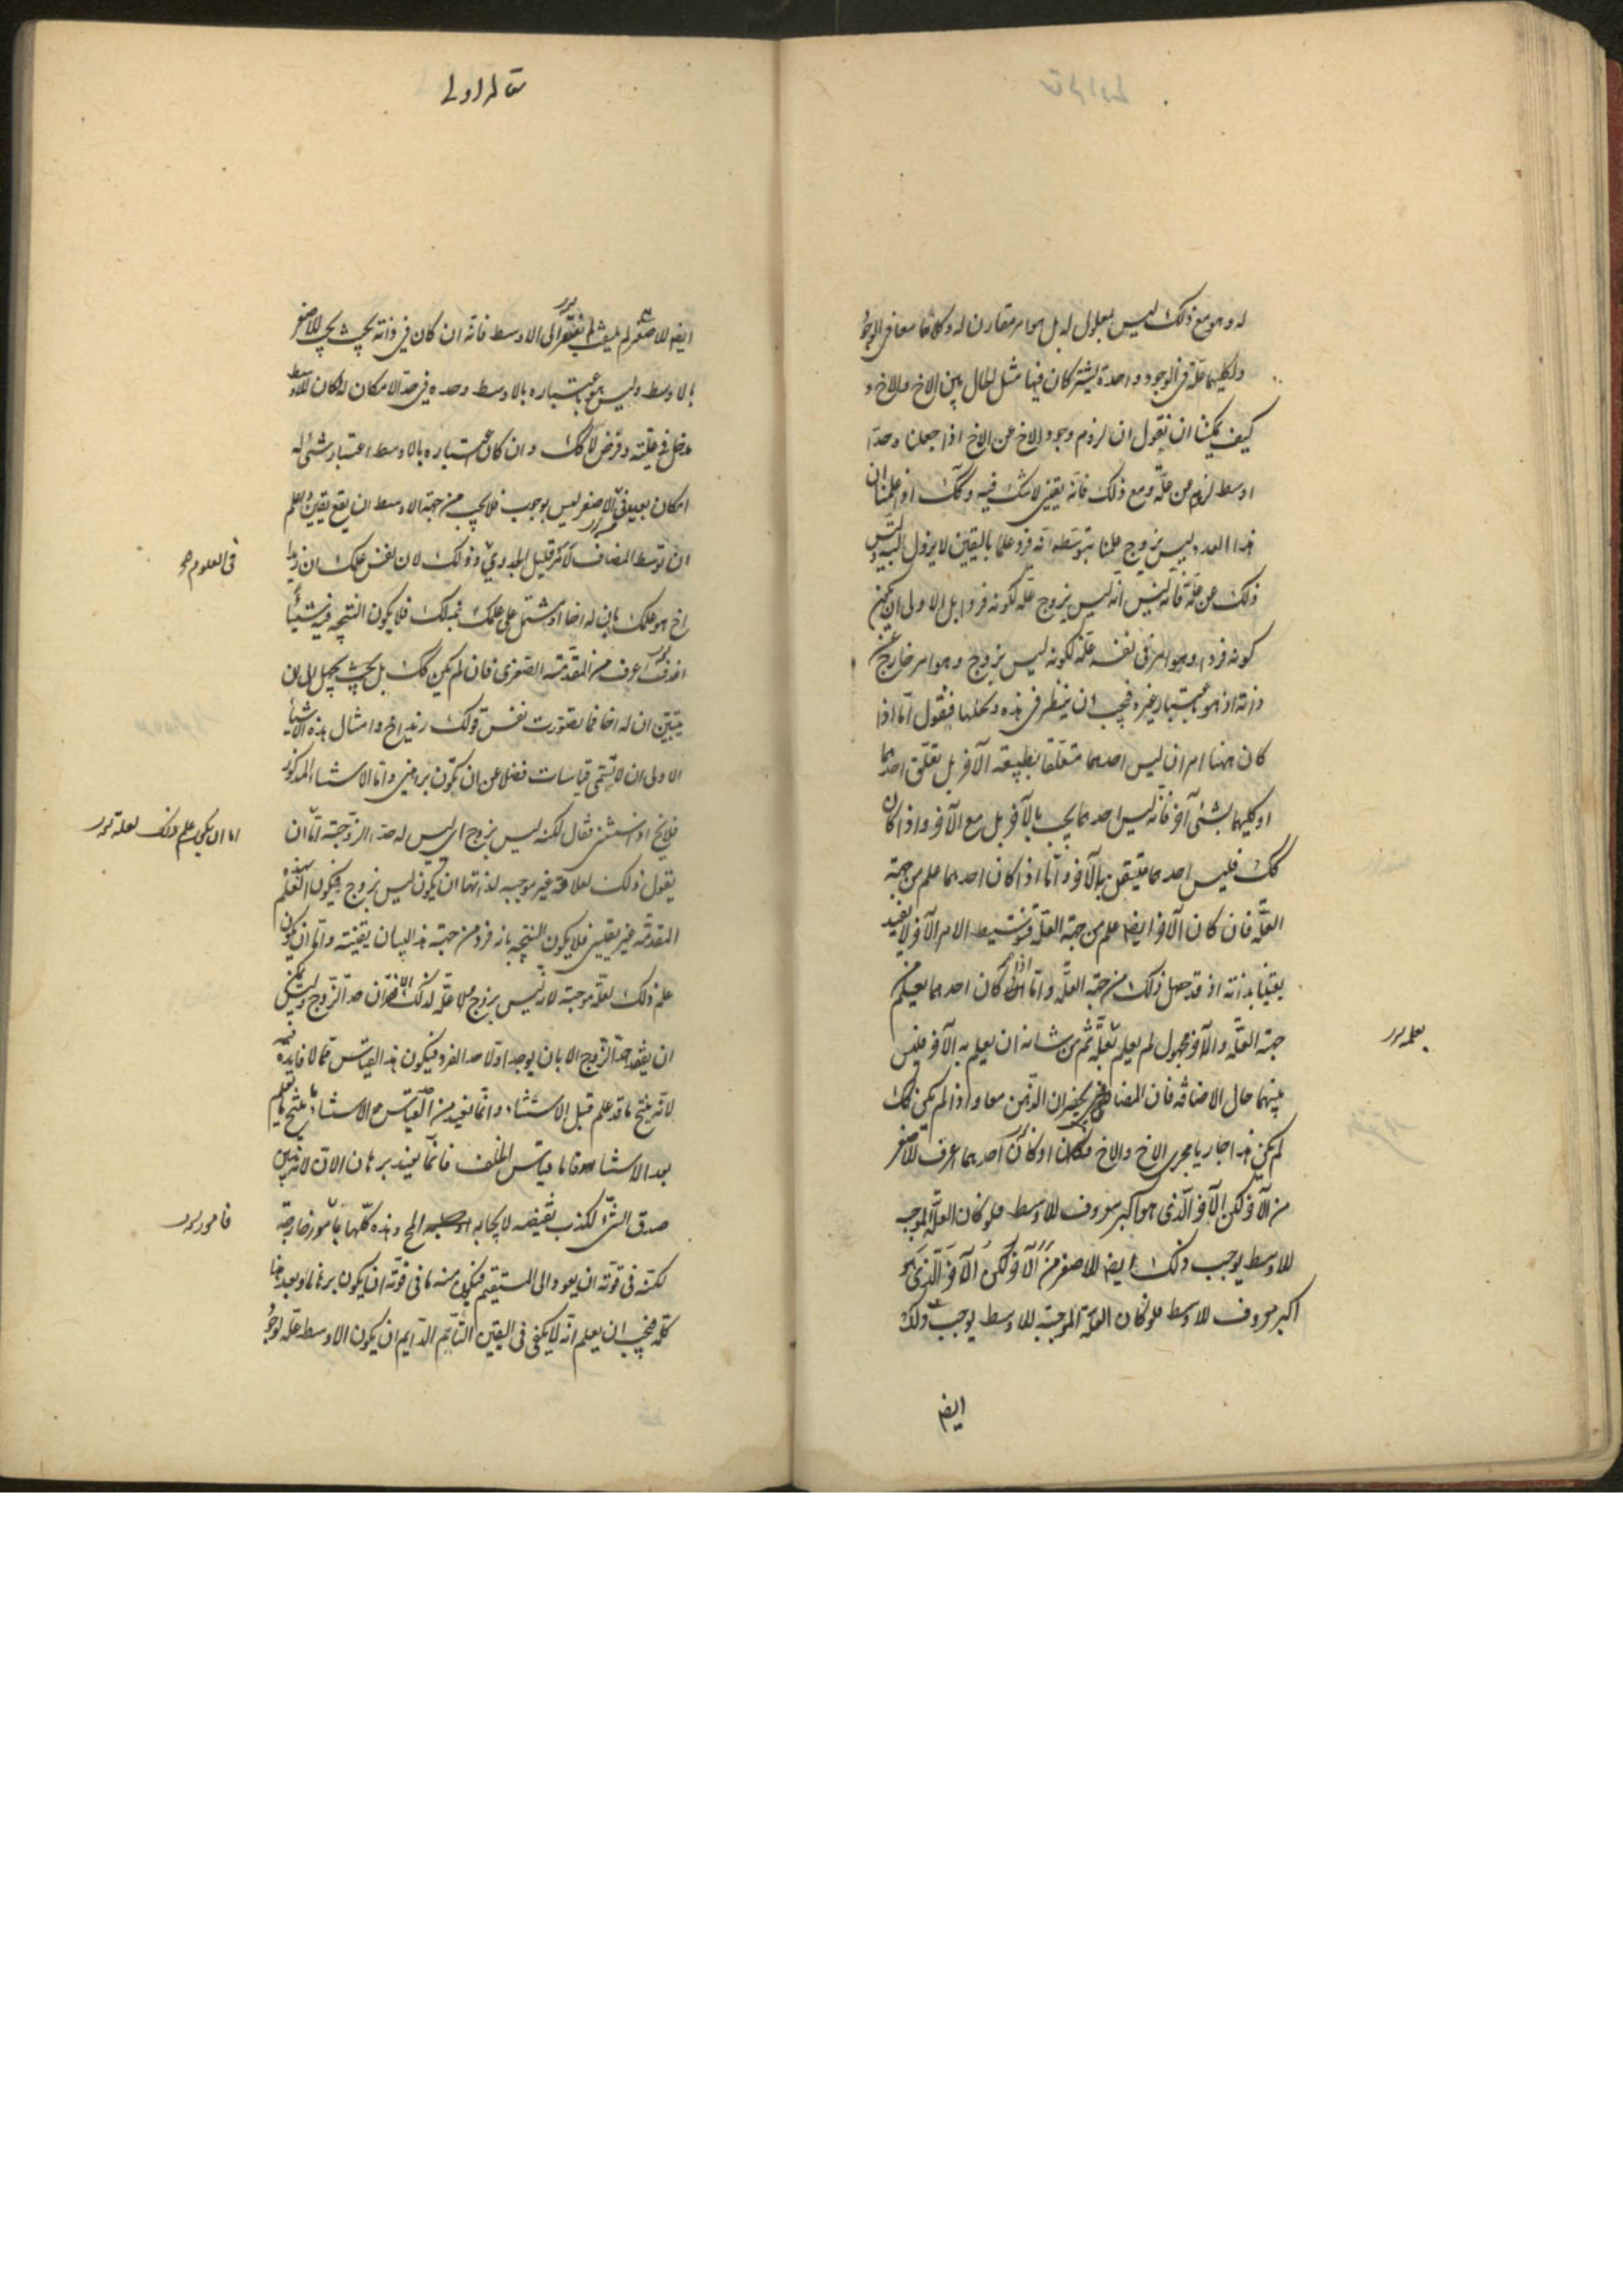 له وهو مع ذلك ليس بمعلول له بل هو امر مقارن له وكلاهما معا فى الوجود
ولكليهما علة فى الوجود واحدة يشتركان فيها مثل الحال بين الاخ والاخ و
كيف يمكننا ان نقول ان لزوم وجود الاخ عن الاخ اذا جعلنا وحدا
اوسط لزوم عن علة ومع ذلك فانه يقينى لا شك فيه وكك اذا علمنا ان
هذا العدد ليس بزوج علمنا بتوسطه انه فرد علما باليقين لا يزول البتة وليس
ذلك عن علة فانه ليس انه ليس بزوج علة لكونه فردا بل الاولى ان يكون
كونه فردا وهو امر فى نفسه علة لكونه ليس بزوج وهو امر خارج عن
ذاته اذ هو باعتبار غيره فيجب ان ينظر فى هذه ونحلها فنقول اما اذا
كان ههنا امران ليس احدهما متعلقا بطبيعة الآخر بل تعلق احدهما
او كليهما بشئ آخر فانه ليس احدهما يجب بالآخر بل مع الآخر واذا كان
كك فليس احدهما بالآخر واما اذا كان احدهما علم من جهة
العلة فان كان الآخر ايضا علم من جهة العلة فتوسيط الامر الآخر لا يفيد
يقينا بذاته اذ قد حصل ذلك من جهة العلة واما اذا كان احدهما يعلم من
جهة العلة والآخر مجهول لم يعلم بعلة ثم من شانه ان يعلم به الآخر فليس
بعلمه
بينهما حال الاضافة فان المضافين يحضران الذهن معا واذا لم يكن كك
لم يكن هذا جاريا مجرى الاخ والاخ فكان احدهما اعرف للاصغر
من الآخر لكن الآخر الذى هو اكبر معروف للاوسط فلو كان العلة الموجبة
للاوسط يوجب ذلك ايضا للاصغر من الآخر لكن الآخر الذى هو
اكبر معروف للاوسط فلو كان العلة الموجبة للاوسط يوجب ذلك
ايضا
ايضا للاصغر لم الى الاوسط فانه ان كان فى ذاته بحيث يجب للاصغر
بالاوسط وليس هو باعتباره بالاوسط وحده فى حد الامكان لكان للاوسط
مدخل فى علية وفرض لا كك وان كان باعتباره بالاوسط اعتبار شئ له
امكان بعيد فى الاصغر ليس بوجوب فلا يجب من جهة الاوسط ان يقع يقين فاعلم
ان توسط المضاف قليل الجدوى وذلك لان نفس علمك ان زيدا
فى العلوم
اخ هو علمك بان له اخا او يشتمل على علمك بذلك فلا يكون النتيجة فيه شيئا
اعرف من المقدمة الصغرى فان لم يكن كك بل بحيث يجهل الى ان
يتبين ان له اخا فما تصورت نفس قولك زيد اخ وامثال هذه الاشياء
الاولى ان لا تسمى قياسات فضلا عن ان تكون براهين واما الاستثناء المذكور
فلا يخ اذا استثنى فقال لكنه ليس بزوج اى ليس له حد الزوجية اما ان
اما ان يكون علم ذلك لعلة
يقول ذلك لعلة غير موجبة لذاتها ان يكون ليس بزوج فيكون
المقدمة غير يقينى فلا يكون النتيجة بانه فرد من جهة هذا البيان يقينية واما ان يكون
علم ذلك لعلة موجبة لانه ليس بزوج فلا علة لذلك الا فقدان حد الزوج وليس يمكن
ان يفقد حد الزوج الا بان يوجد اولا حد الفرد فيكون هذا القياس مما لا فائدة فيه
لانه ينتج ما قد علم قبل الاستثناء وانما يفيد من القياس الاستثنائى ما ينتج ما يعلم
بعد الاستثناء فاما قياس الخلف فانما يفيد برهان الان لانه يبين
صدق الشئ لكذب نقيضه لايجابه المح وهذه كلها بامور خارجة
فامور
لكنه فى قوته ان يعود الى المستقيم فيكون منه ما فى قوته ان يكون برهانا وبعد هذا
كله فيجب ان يعلم انه لا يكفى فى اليقين التام الدايم ان يكون الاوسط علة لوجود